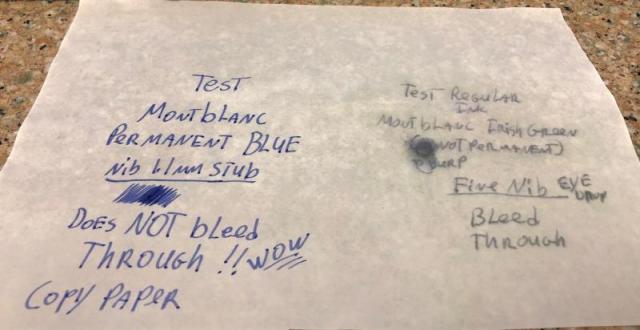 TEST
MONTBLANC
PERMANENT BLUE
Nib 1.1mm STUB
DOES NOT bleed
THROUGH !! WOW
COPY PAPER
TEST REGULAR
INK
MONTBLANC IRISH GREEN
(NOT PERMANENT)
Fine Nib EYE
Bleed
THROUGH